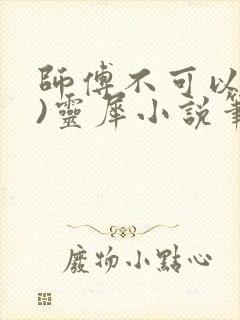 師傅不可以
)靈犀小說
廢物小點心